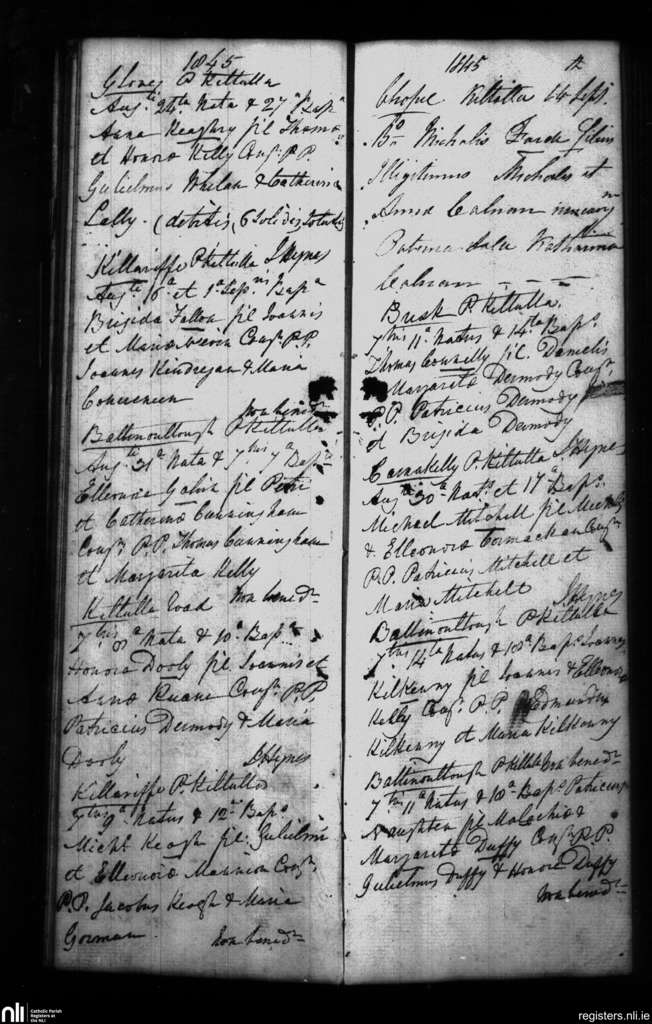 1845
P Killulla
Aug. 24.ta Nata & 27.a Bap.a
Anna Keaghry fil Thomæ
et Honoræ Kelly Conj. P.P.
Gulielmus Whelan & Catherina
Lally. (debitis, 6 Solidis
Killariffe P Killulla J Hynes
Aug.te 16.a et 1.a Sep. Bap.a
Brigida Fallon fil Joannis
et Mariæ Conj. P.P.
Joannes & Maria
non bened
Ballinoultough P Killulla
Aug. 31.a Nata & 7.bris 7.a Bap
Elleonora Galvin fil Petri
et Catherinæ Cunningham
Conj. P.P. Thomas Cunningham
et Margarita Kelly
Killulla road non bened
7.bris 8.a Nata & 10.a Bap.a
Honora Dooly fil Joannis et
Annæ Ruane Conj. P.P.
Patricius Dermody & Maria
Dooly J Hynes
Killariffe P Killulla
7.bris 9.a Natus & 12.a Bap.s
Mich.l Keogh fil. Gulielmi
et Elleonoræ Mannion Conj.
P.P. Jacobus Keogh & Maria
Gorman non bened
1845
Chapel Killulla Sep.
Michalis filius
Illigitimus Michalis et
Annæ Calnan
Catharina
Calnan
Busk P. Killulla.
7.bris 11.a Natus & 14.ta Bap.s
Thomas Connelly fil. Danielis
Margaritæ Dermody Conj.
P.P. Patricius Dermody
et Brigida Dermody
Carnakelly P. Killulla J Hynes
Aug. 30.a Nat.s et 17.a Bap.s
Michael Mitchell fil Mich
& Elleonoræ Cormackan Conj.
P.P. Patricius Mitchell et
Maria Mitchell J Hynes
Ballinoultough P Killulla
7.bris 14.ta Natus & 18.a Bap.s Joannes
Kilkenny fil Joannis & Elleonoræ
Kelly Conj. P.P. Edmundus
Kilkenny et Maria Kilkenny
Ballinoultough P Killulla non bened
7.bris 11.a Natus & 18.a Bap.s Patricius
Naughten fil Malachiæ &
Margaritæ Duffy Conj. P.P.
Gulielmus Duffy & Honora Duffy
non bened
nli Catholic Parish Registers at the NLI
registers.nli.ie